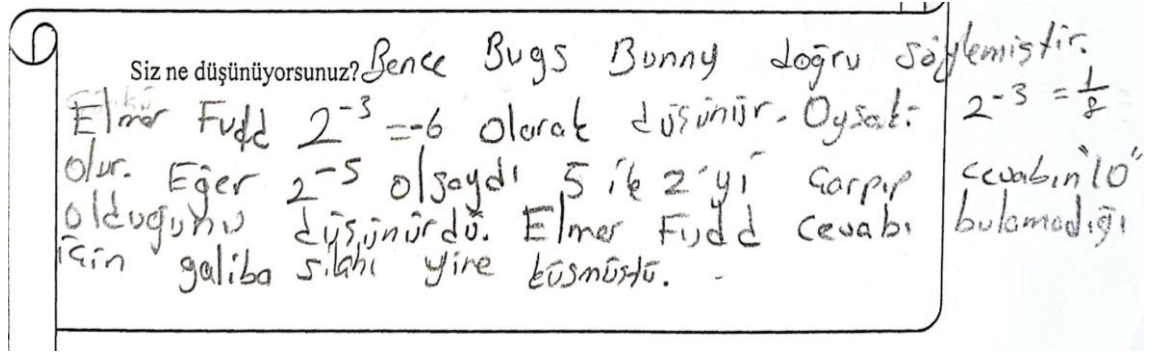 Siz ne düşünüyorsunuz? Bence Bugs Bunny doğru söylemiştir.
Elmer Fudd 2⁻³ =-6 olarak düşünür. Oysaki 2⁻³ = 1/8
olur. Eğer 2⁻⁵ olsaydı 5 ile 2'yi çarpıp cevabın "10"
olduğunu düşünürdü. Elmer Fudd cevabı bulamadığı
için galiba silahı yine küsmüştü.